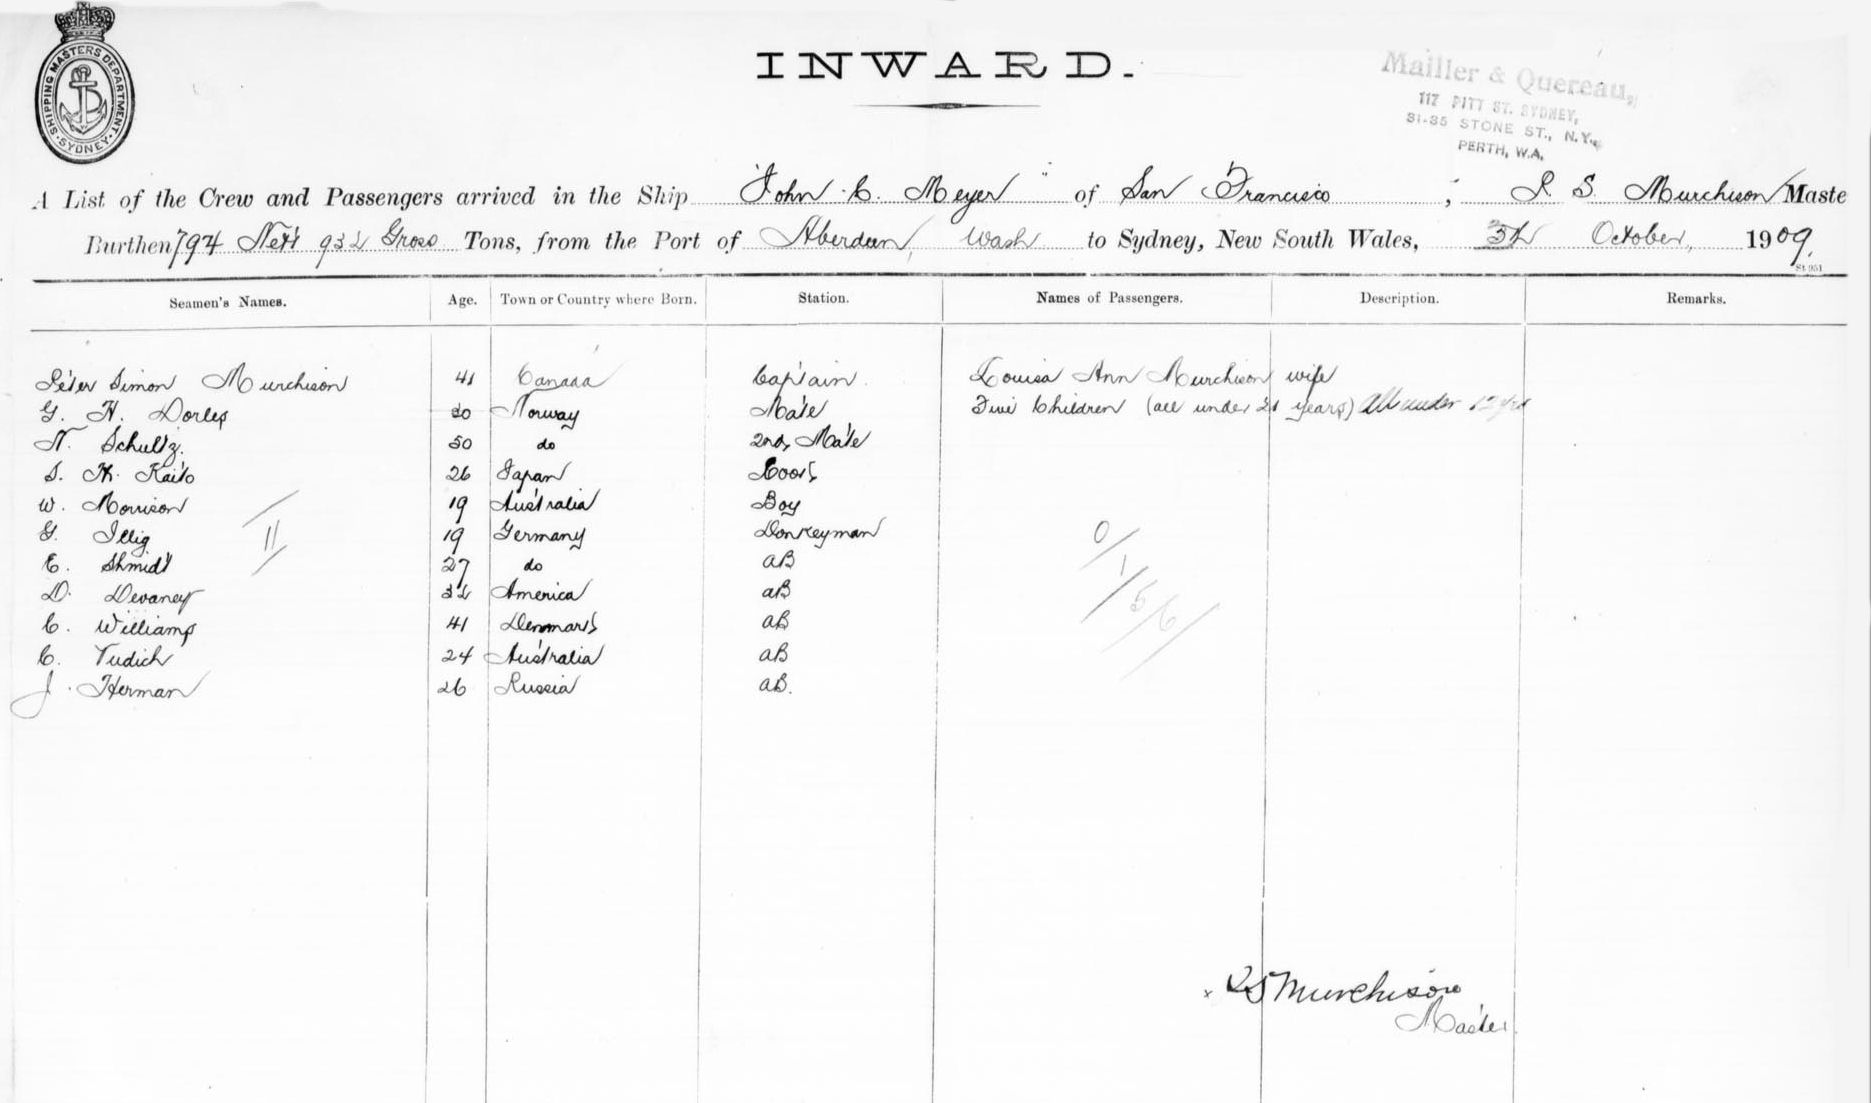 SHIPPING MASTERS DEPARTMENT. SYDNEY.
INWARD.
Mailler & Quereau,
117 PITT ST. SYDNEY,
31-35 STONE ST., N.Y.
PERTH, W.A.
A List of the Crew and Passengers arrived in the Ship "John C. Meyer" of San Francisco ; P. S. Murchison Maste
Burthen 794 Nett 932 Gross Tons, from the Port of Aberdeen, Wash to Sydney, New South Wales, October, 1909.
St 951
Seamen's Names. Age. Town or Country where Born. Station. Names of Passengers. Description. Remarks.
Peter Simon Murchison 41 Canada Captain. Louisa Ann Murchison wife
G. H. Norway Mate Five Children (all under 21 years) All under 12 yrs
N. Schultz. 50 do 2nd Mate
S. K. Kaito 26 Japan Cook
W. Morrison 19 Australia Boy
G. Illig 19 Germany Donkeyman
E. Shmidt 27 do AB
D. Devaney 32 America AB
C. Williams 41 Denmark AB
C. Tudich 24 Australia AB
J. Herman 26 Russia AB.
11
0/1/5/6/
x P S Murchison
Master.